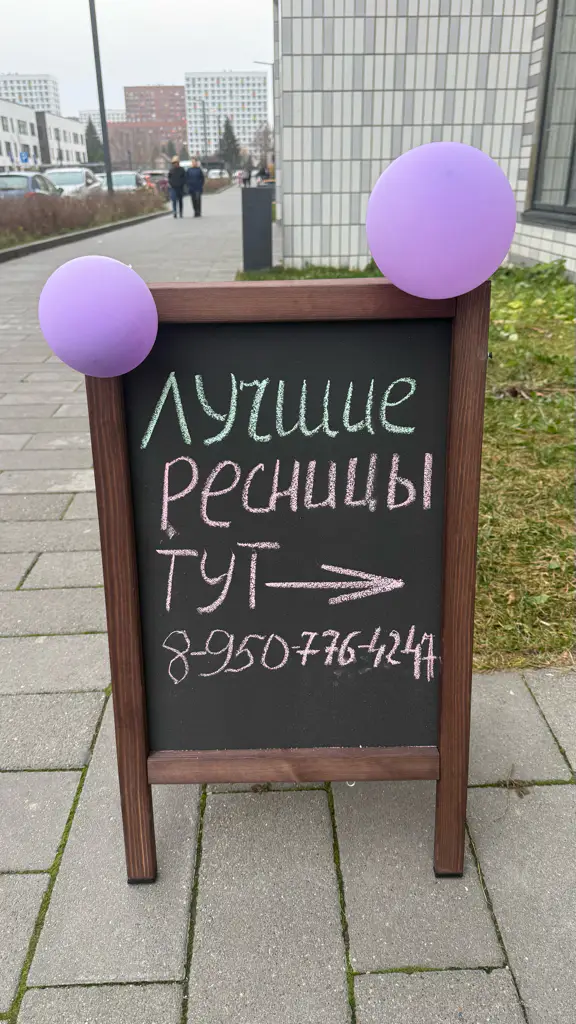 ЛУЧШИЕ
РЕСНИЦЫ
ТУТ →
8-950-776-4247